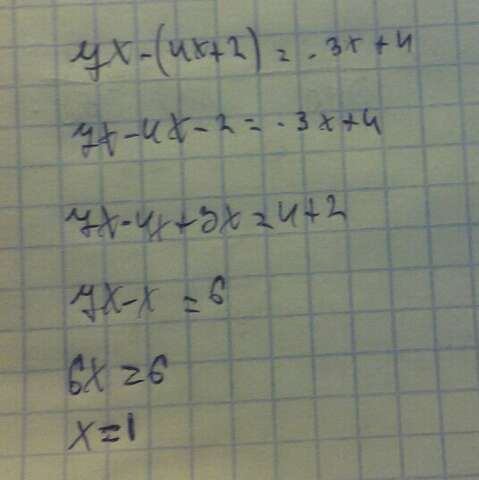 7x-(4x+2)=-3x+4
7x-4x-2=-3x+4
7x-4x+3x=4+2
7x-x=6
6x=6
x=1